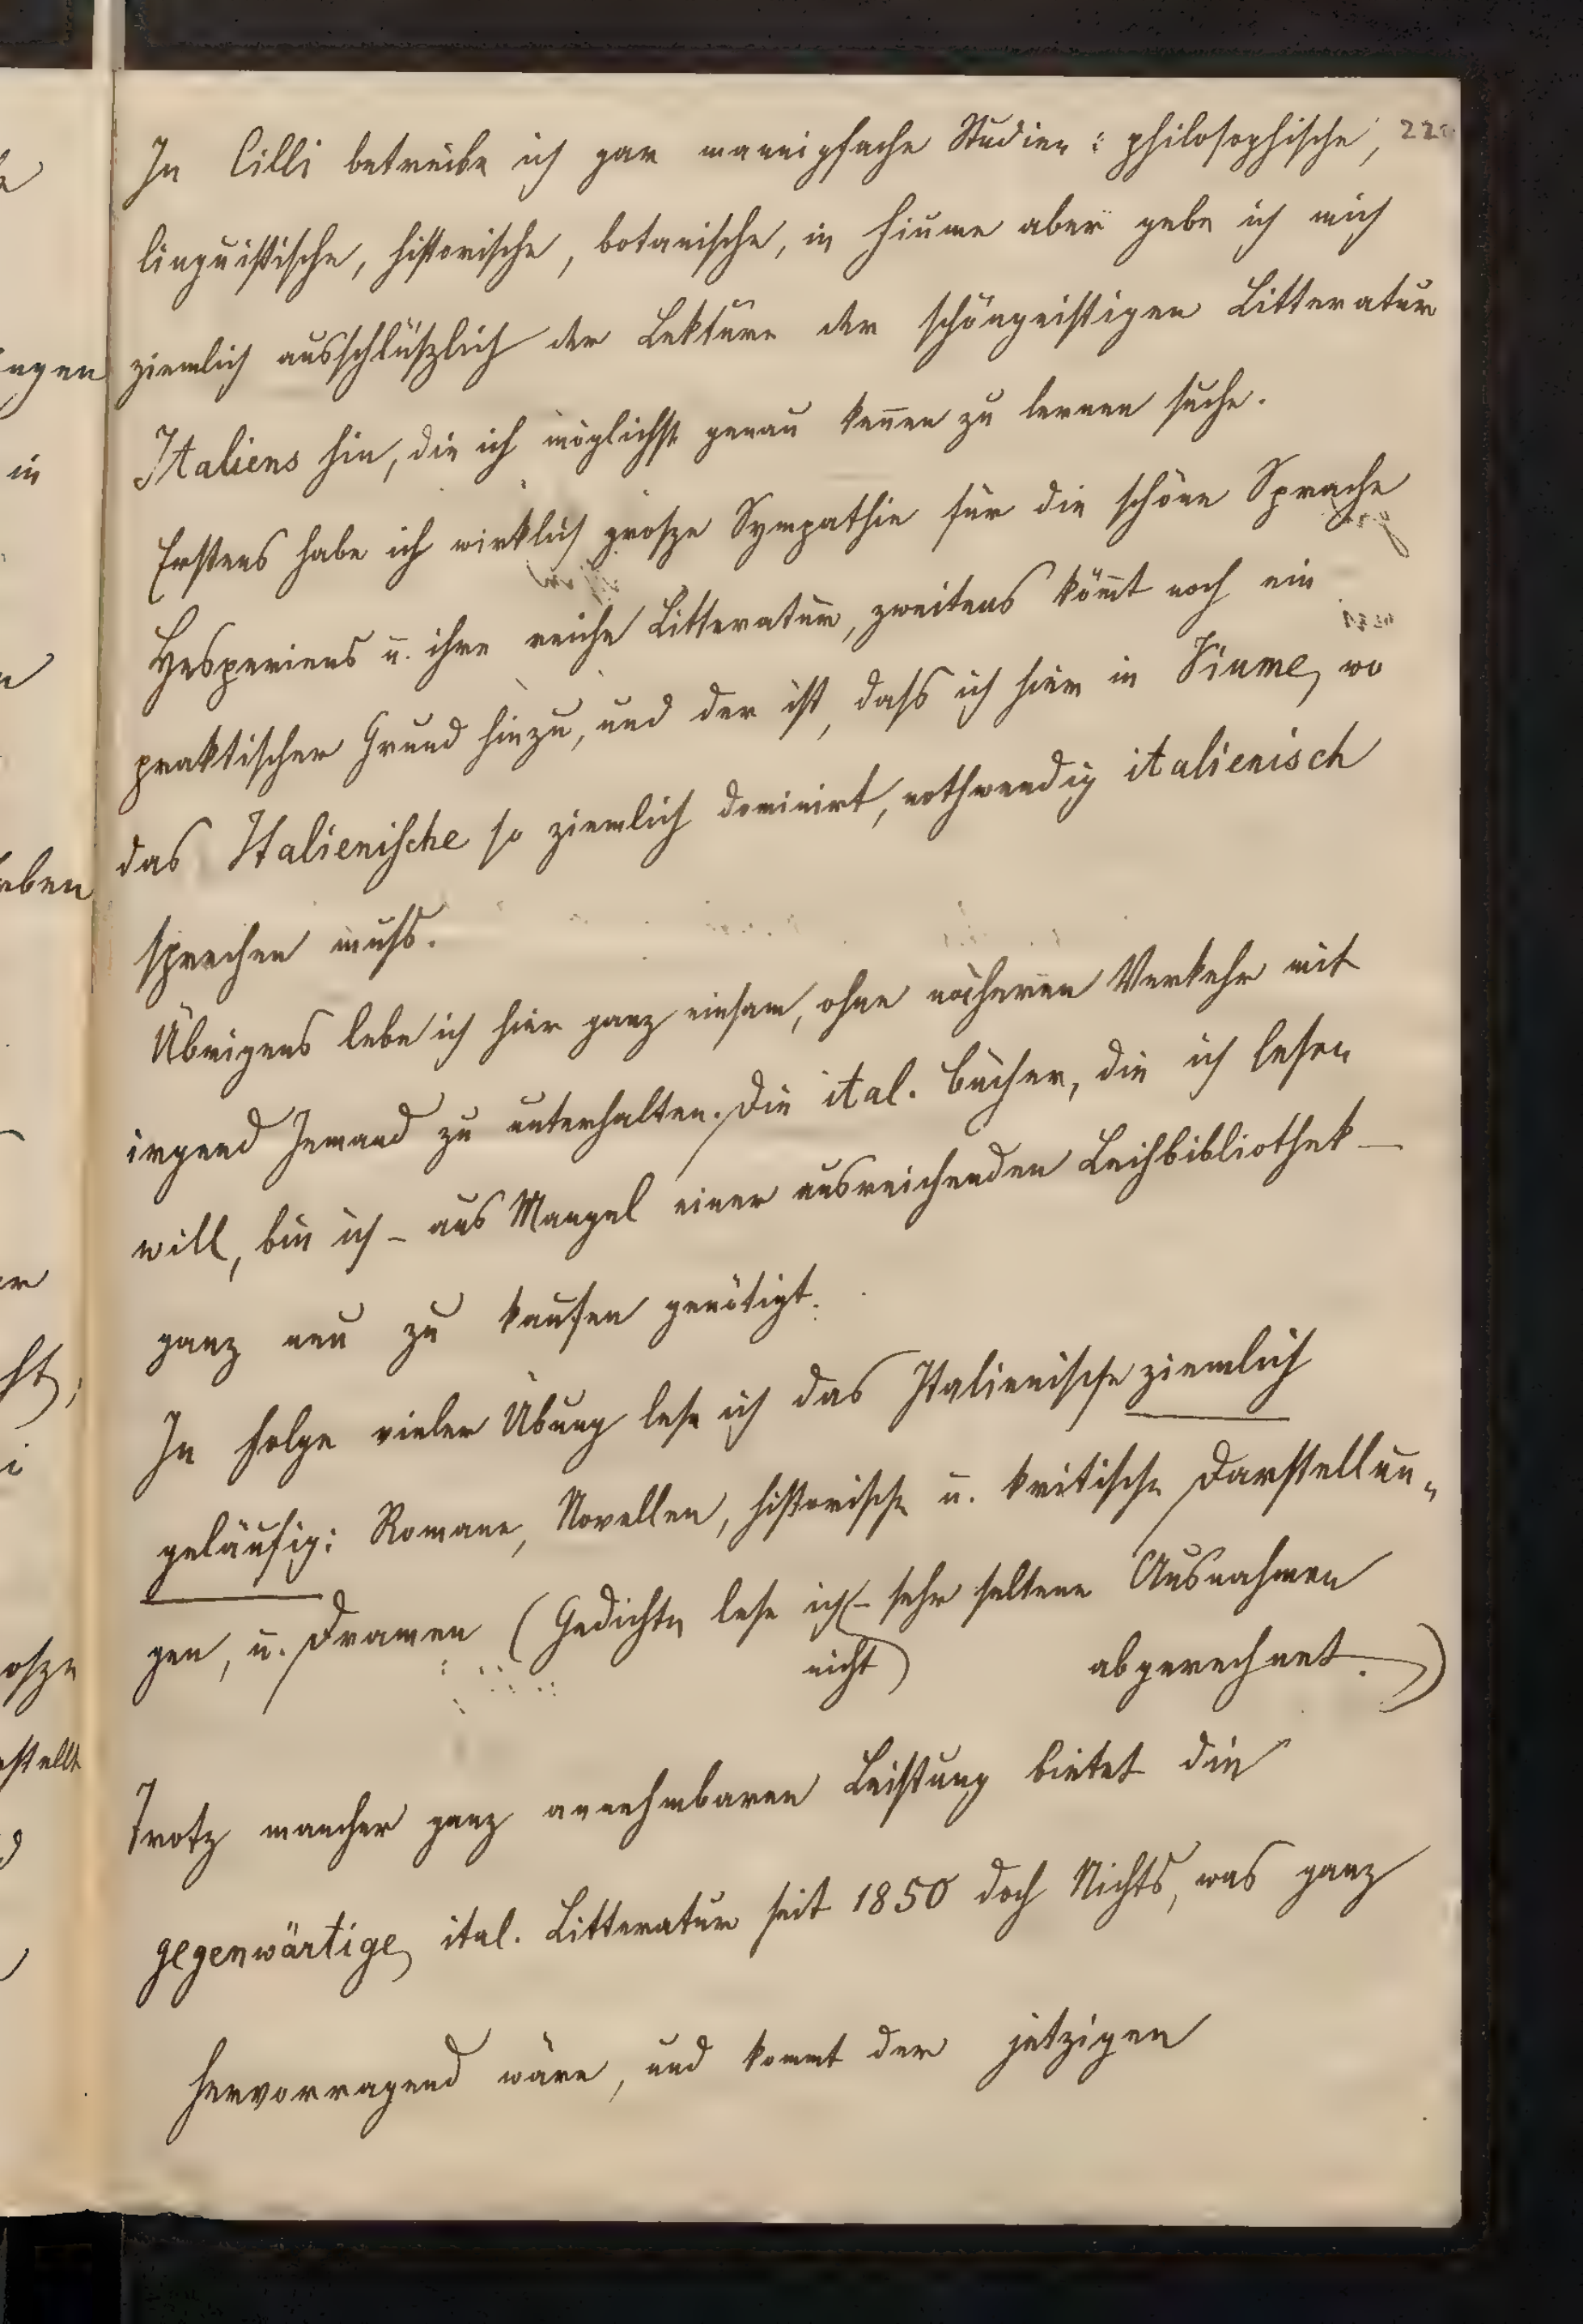 In Cilli betreibe ich gar mannigfache Studien: philosophische,
linguistische, historische, botanische, in Fiume aber gebe ich mich
ziemlich ausschlüszlich der Lektüre der schöngeistigen Litteratur
Italiens hin, die ich möglichst genau keñen zu lernen suche.
Erstens habe ich wirklich grosze Sympathie für die schöne Sprache
Hesperiens u. ihre reiche Litteratur, zweitens köm̄t noch ein
praktischer Grund hinzu, und der ist, dass ich hier in Fiume, wo
das Italienische so ziemlich dominirt, nothwendig italienisch
sprechen muss.
Übrigens lebe ich hier ganz einsam, ohne näheren Verkehr mit
irgend Jemand zu unterhalten. Die ital. Bücher, die ich lesen
will, bin ich – aus Mangel einer ausreichenden Leihbibliothek –
ganz neu zu kaufen genötigt.
In Folge vieler Übung lese ich das Italienische ziemlich
geläufig: Romane, Novellen, historische u. kritische Darstellun„
gen, u. Dramen (Gedichte lese ich – sehr seltene Ausnahmen
nicht abgerechnet.)
Trotz mancher ganz annehmbaren Leistung bietet die
gegenwärtige ital. Litteratur seit 1850 doch Nichts, was ganz
hervorragend wäre, und kommt der jetzigen